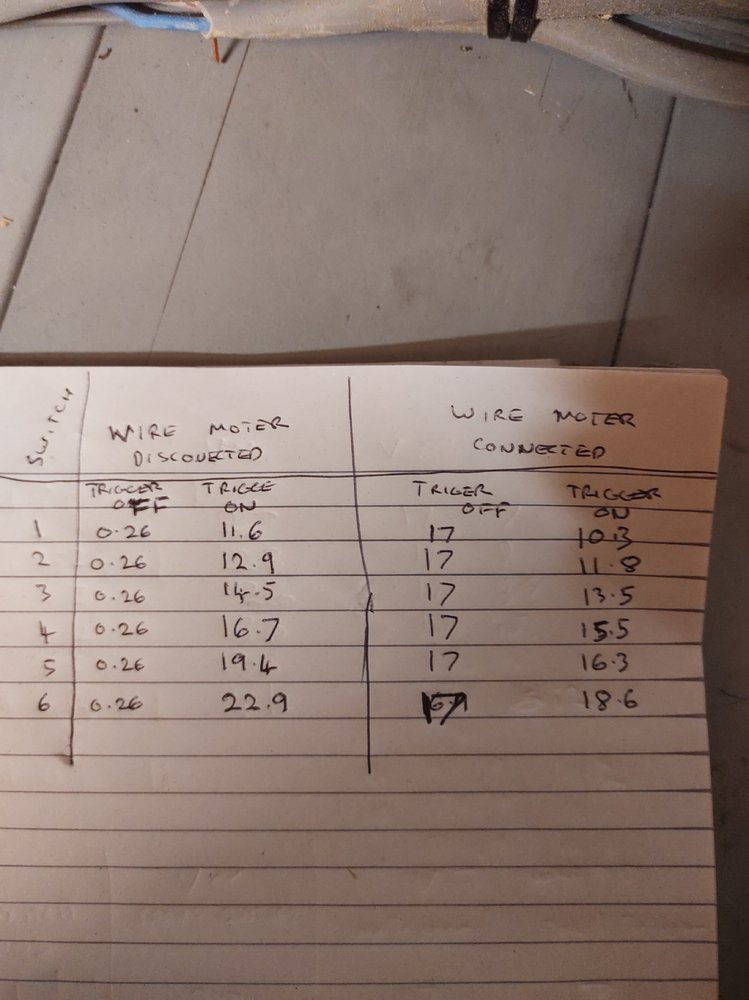 SWITCH
WIRE MOTER WIRE MOTER
DISCONECTED CONNECTED
TRIGGER TRIGGE TRIGER TRIGGER
OFF ON OFF ON
1 0.26 11.6 17 10.3
2 0.26 12.9 17 11.8
3 0.26 14.5 17 13.5
4 0.26 16.7 17 15.5
5 0.26 19.4 17 16.3
6 0.26 22.9 17 18.6